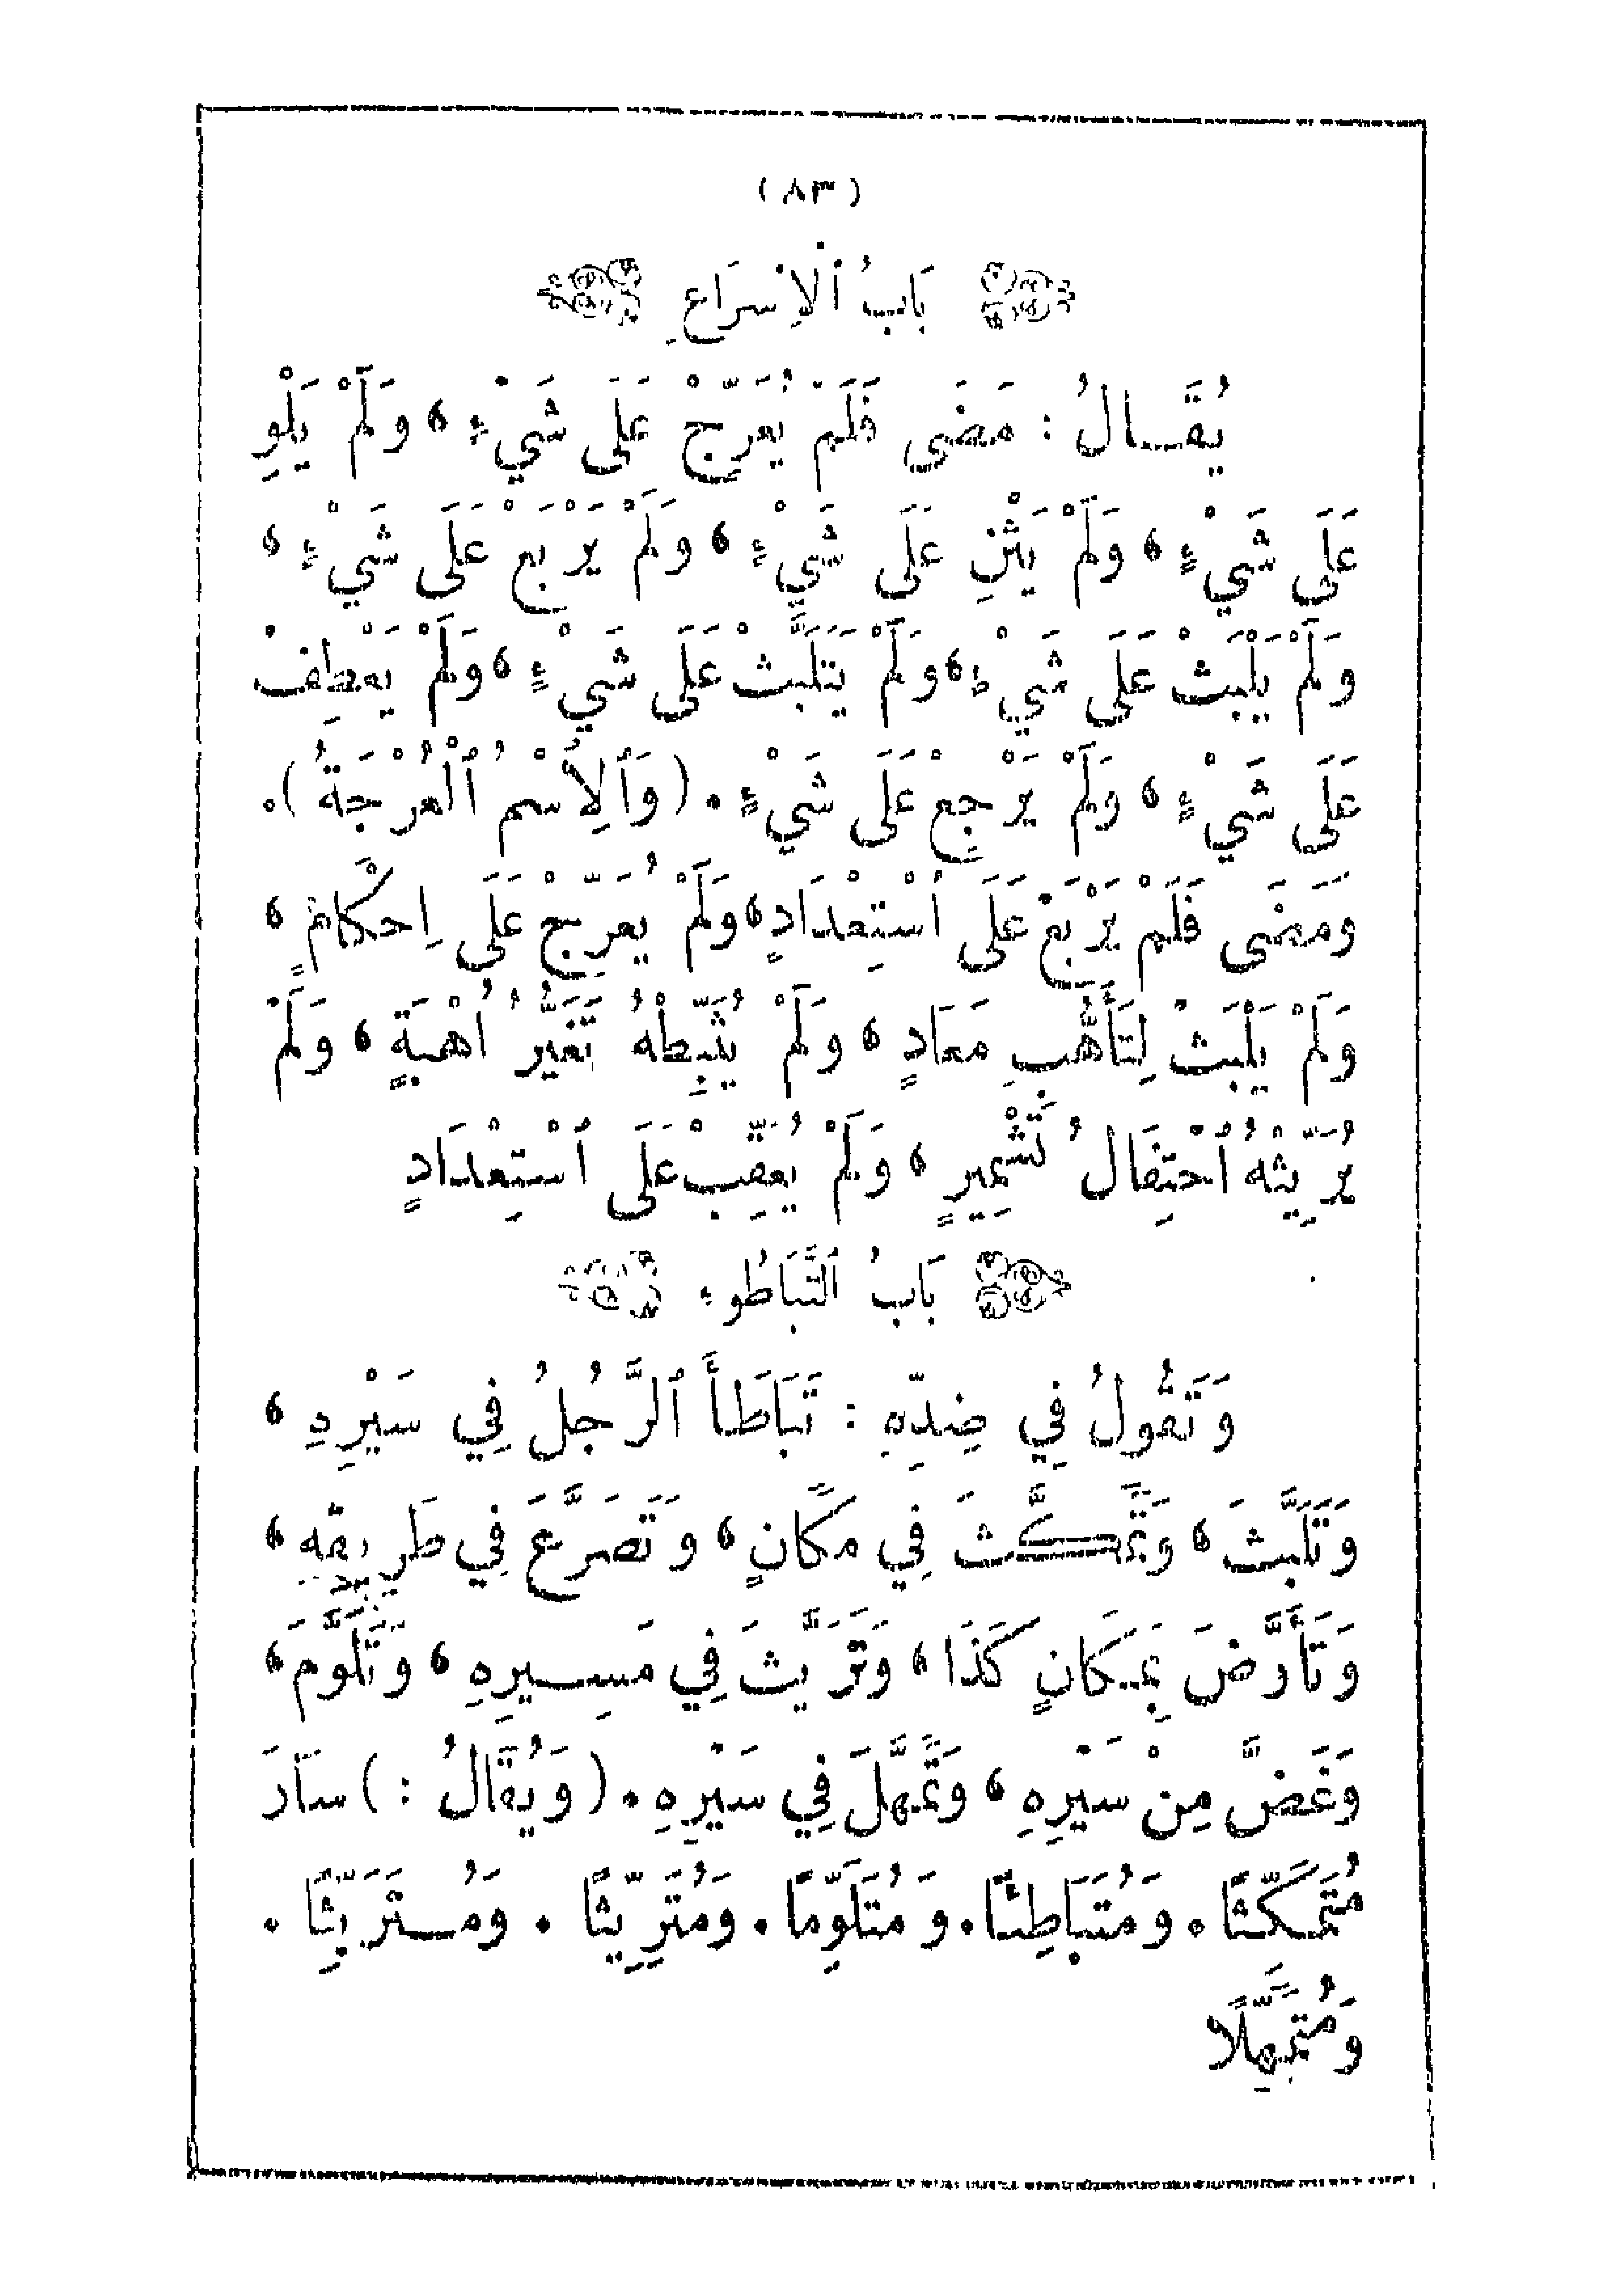 (٨٣)
بَابُ ٱلْإِسْرَاعِ
يُقَالُ : مَضَى فَلَمْ يُعَرِّجْ عَلَى شَيْءٍ ، وَلَمْ يَلْوِ
عَلَى شَيْءٍ ، وَلَمْ يَثْنِ عَلَى شَيْءٍ ، وَلَمْ يَرْبَعْ عَلَى شَيْءٍ ،
وَلَمْ يَلْبَثْ عَلَى شَيْءٍ ، وَلَمْ يَتَلَبَّثْ عَلَى شَيْءٍ ، وَلَمْ يَعْطِفْ
عَلَى شَيْءٍ ، وَلَمْ يَرْجِعْ عَلَى شَيْءٍ . (وَٱلِٱسْمُ ٱلْعُرْجَةُ) .
وَمَضَى فَلَمْ يَرْبَعْ عَلَى ٱسْتِعْدَادٍ ، وَلَمْ يُعَرِّجْ عَلَى إِحْكَامٍ ،
وَلَمْ يَلْبَثْ لِتَأَهُّبِ مَعَادٍ ، وَلَمْ يُثَبِّطْهُ تَغَيُّرُ أُهْبَةٍ ، وَلَمْ
يُرَيِّثْهُ ٱحْتِفَالُ تَشْمِيرٍ ، وَلَمْ يُعَقِّبْ عَلَى ٱسْتِعْدَادٍ
بَابُ ٱلتَّبَاطُوءِ
وَتَقُولُ فِي ضِدِّهِ : تَبَاطَأَ ٱلرَّجُلُ فِي سَيْرِهِ ،
وَتَلَبَّثَ ، وَتَمَكَّثَ فِي مَكَانٍ ، وَتَضَرَّعَ فِي طَرِيقِهِ ،
وَتَأَرَّضَ بِمَكَانٍ كَذَا ، وَتَرَيَّثَ فِي مَسِيرِهِ ، وَتَلَوَّمَ ،
وَغَضَّ مِنْ سَيْرِهِ ، وَتَمَهَّلَ فِي سَيْرِهِ . (وَيُقَالُ :) سَارَ
مُتَمَكِّثًا . وَمُتَبَاطِئًا . وَمُتَلَوِّمًا . وَمُتَرَيِّثًا . وَمُسْتَرْيِثًا .
وَمُتَمَهِّلًا